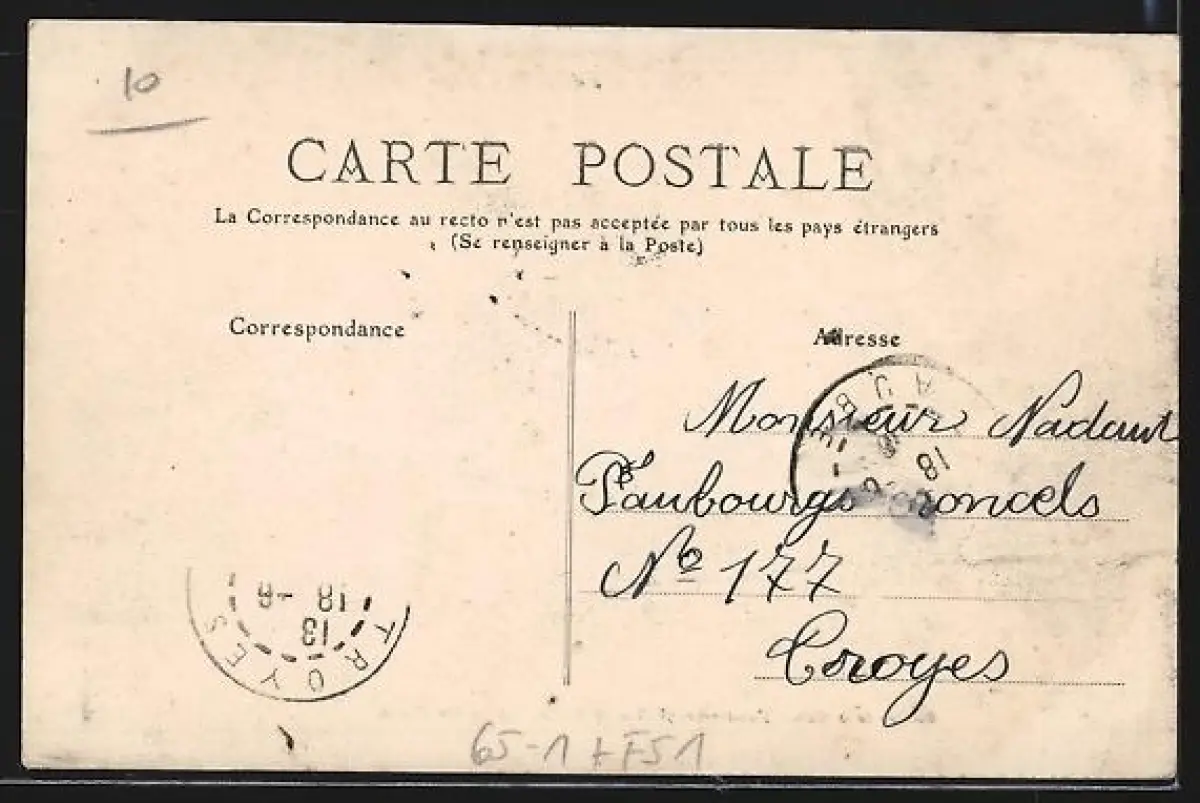 10
CARTE POSTALE
La Correspondance au recto n'est pas acceptée par tous les pays étrangers
(Se renseigner à la Poste)
Correspondance
Adresse
AUBE
18
Monsieur Nadaut
Faubourgs Croncels
No 177
Troyes
TROYES
18 -8
13
65-1 + F51